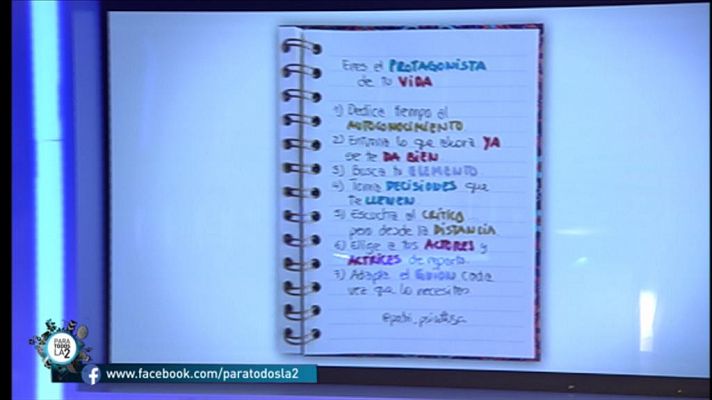 Eres el PROTAGONISTA
de tu VIDA
1) Dedica tiempo al
AUTOCONOCIMIENTO
2) Entrena lo que ahora YA
se te DA BIEN
3) Busca tu ELEMENTO
4) Toma DECISIONES que
te LLENEN
5) Escucha al CRÍTICO
pero desde la DISTANCIA
6) Elige a tus ACTORES y
ACTRICES de reparto
7) Adapta el GUION cada
vez que lo necesites
PARA
TODOS
LA2
f www.facebook.com/paratodosla2